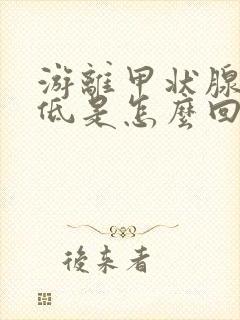 游離甲状腺
低是怎麼回
後来者